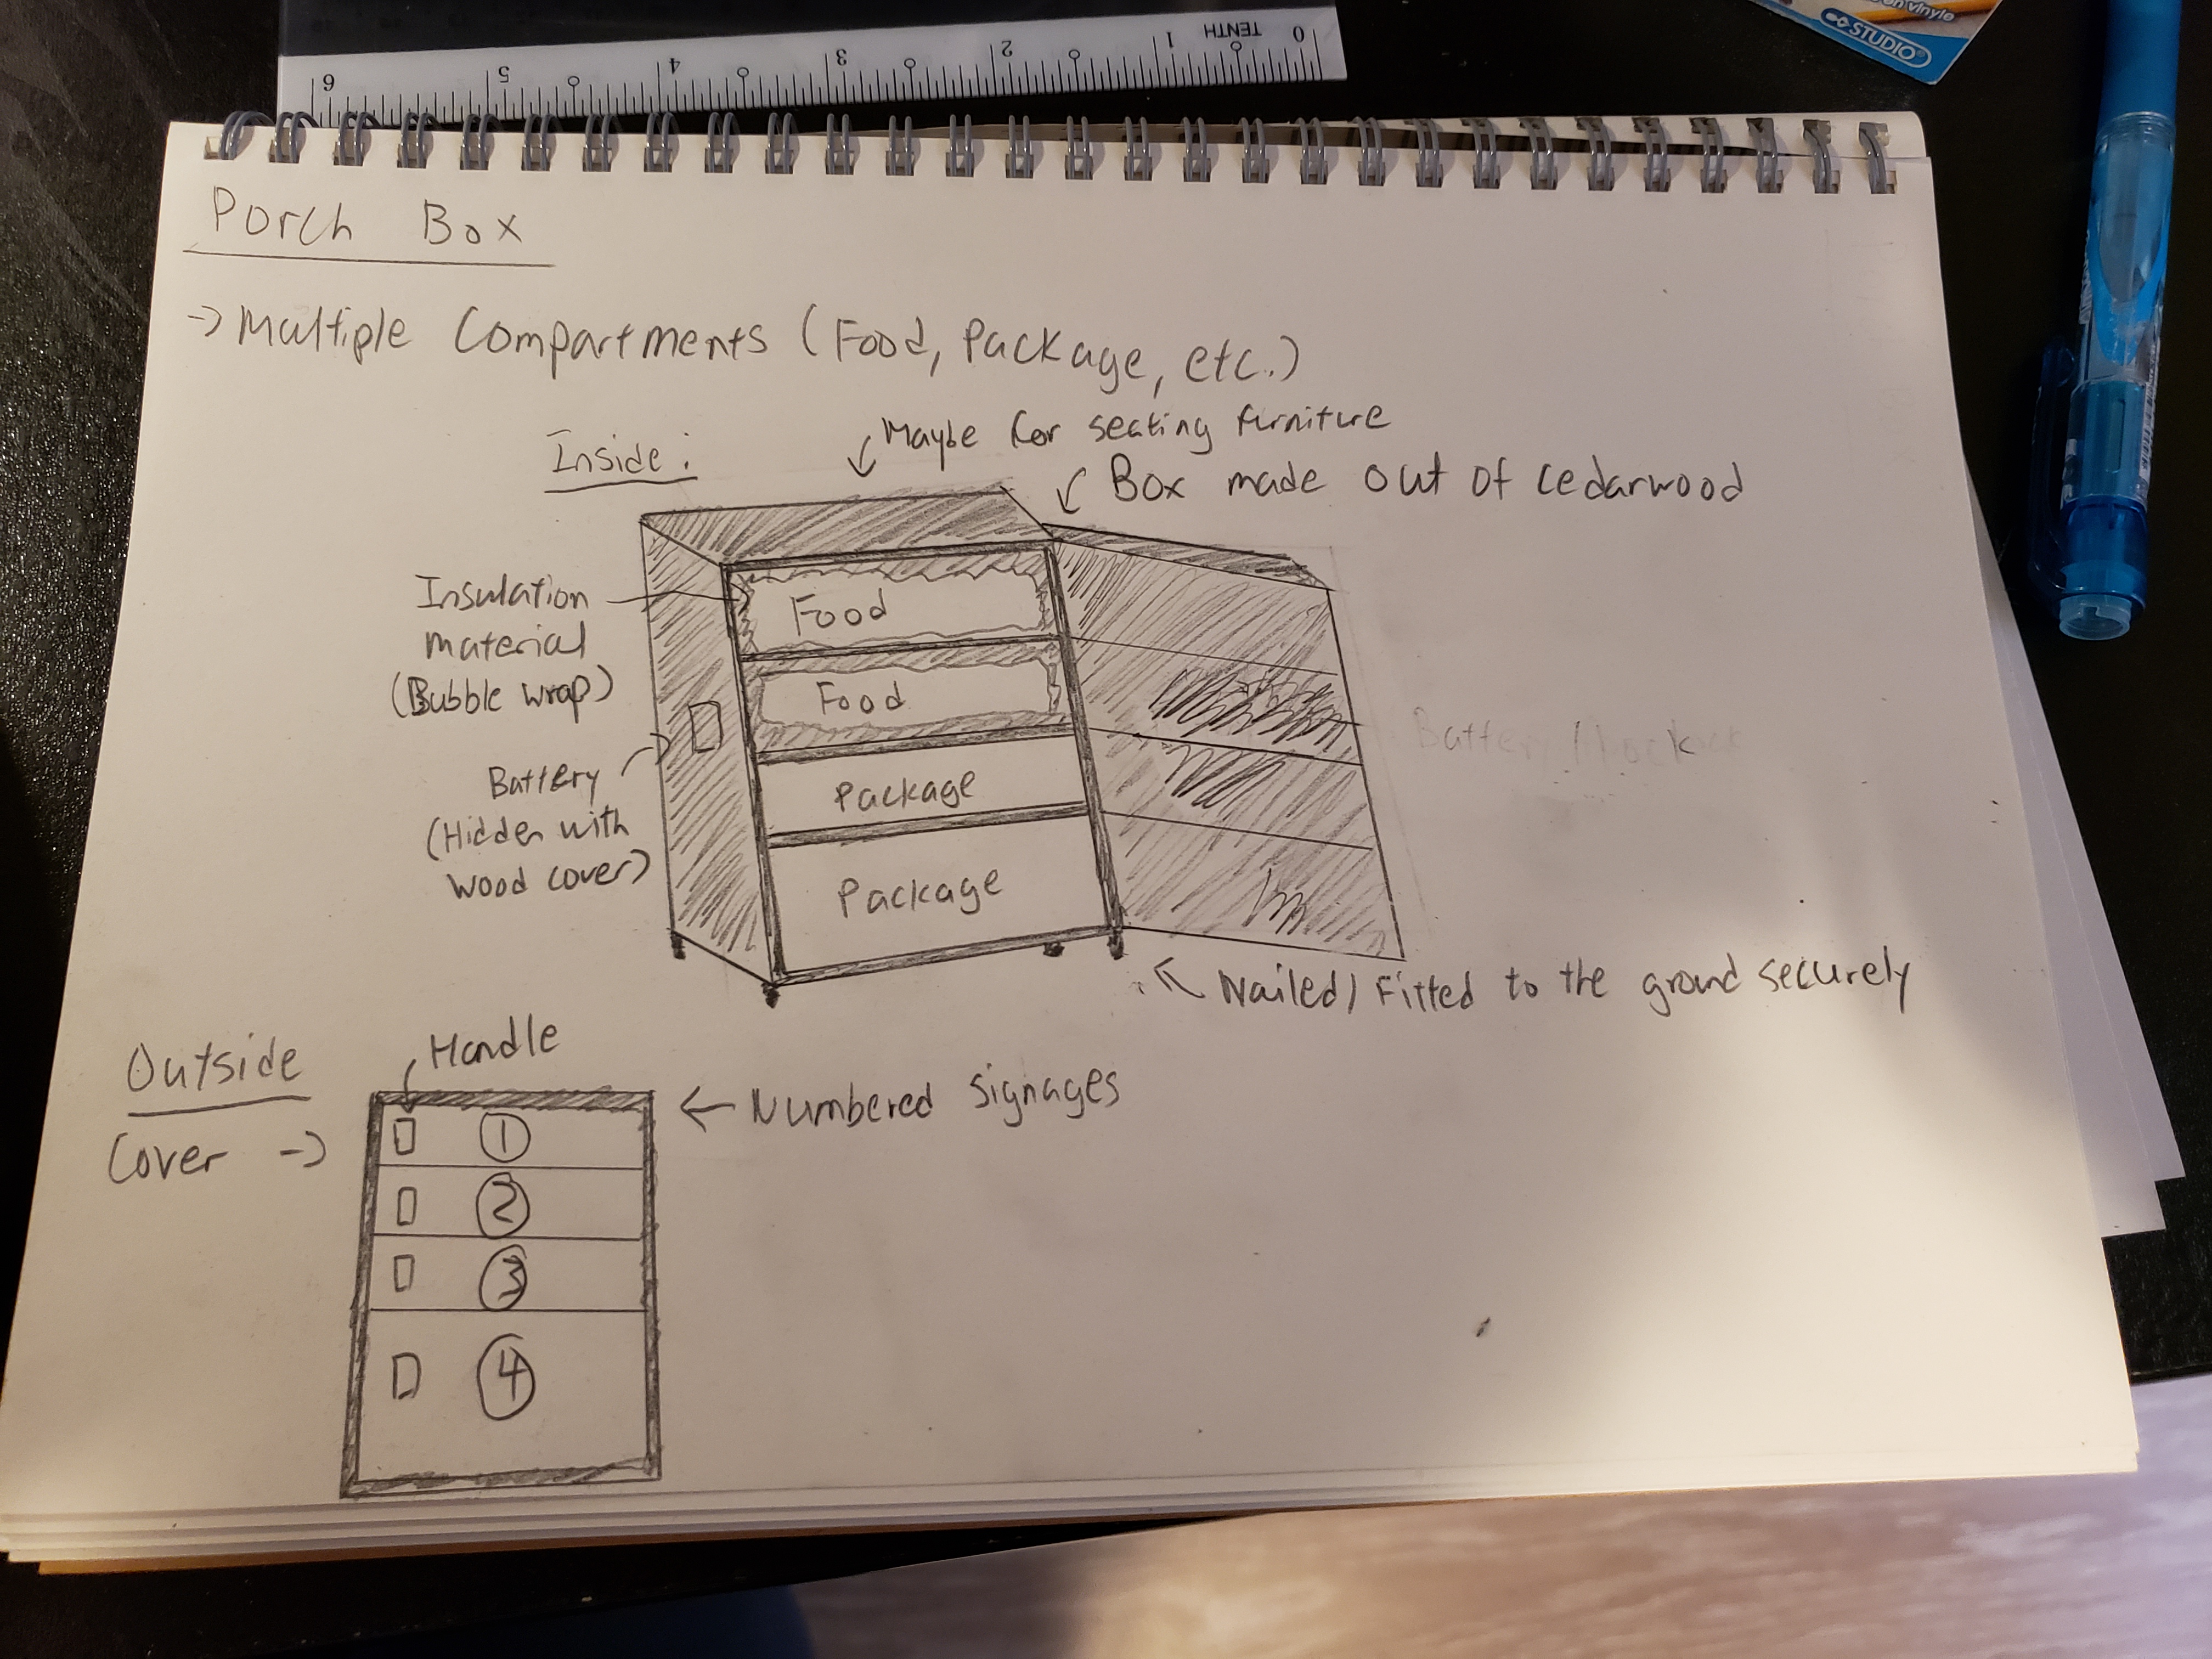 0 TENTH 1 2 3 4 5 6
on vinyle
STUDIO
Porch Box
→ Multiple Compartments (Food, Package, etc.)
Maybe for seating furniture
Inside:
Box made out of cedarwood
Insulation
material
(Bubble wrap)
Food
Food
Battery
Battery
(Hidden with
wood cover)
Package
Package
Nailed/Fitted to the ground securely
Outside
Handle
Cover →
← Numbered Signages
1
2
3
4